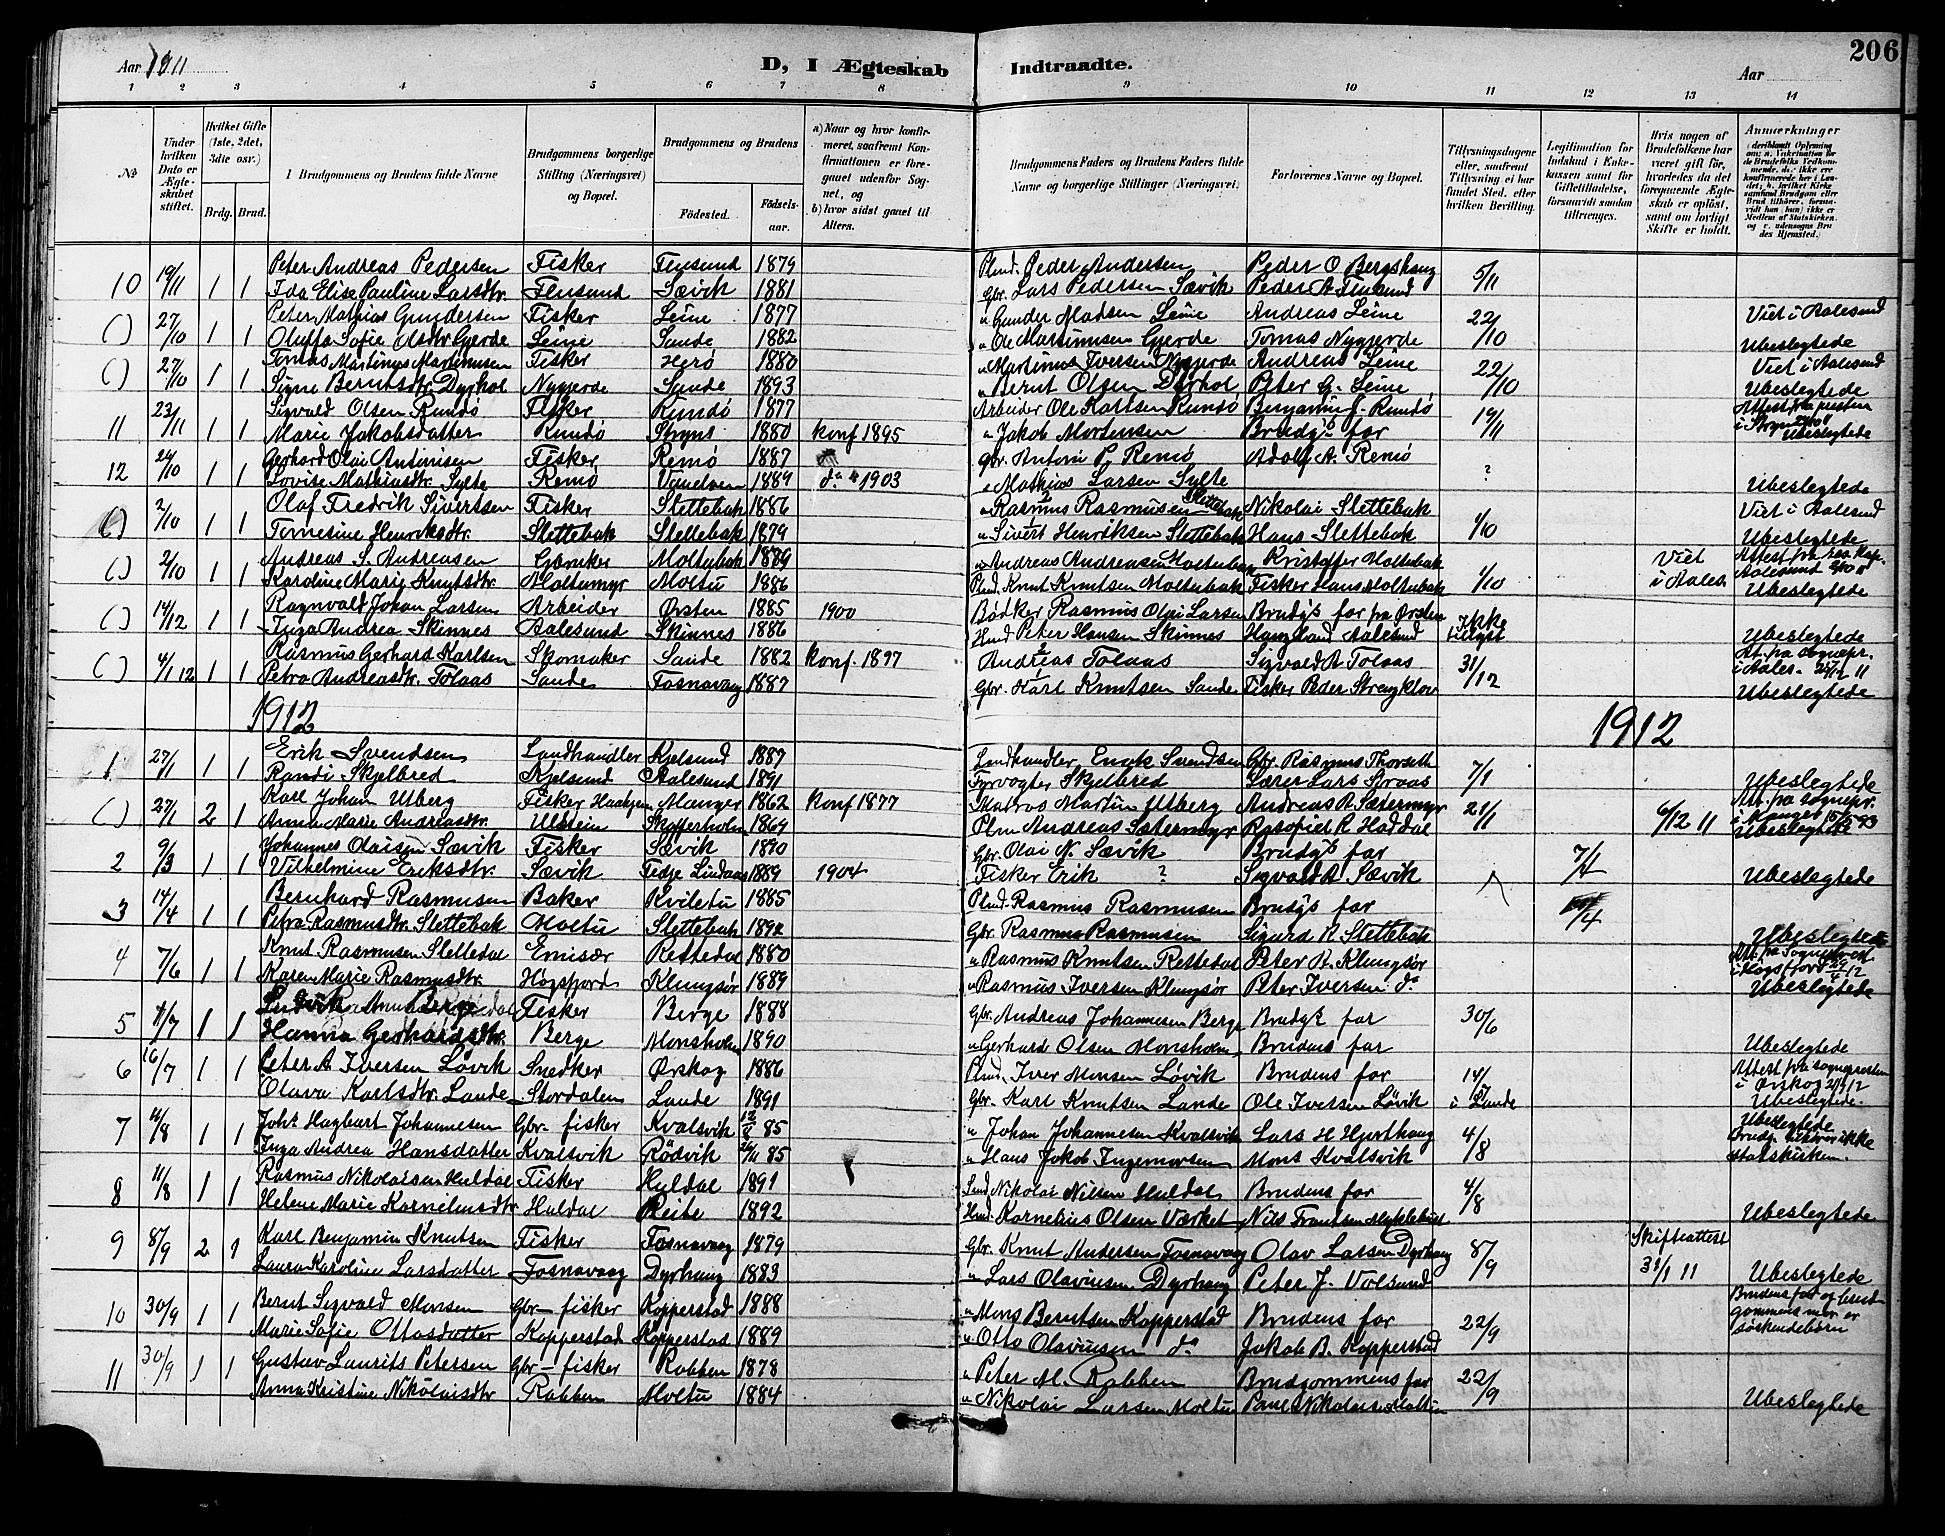 Aar 1911
D, I Ægteskab Indtraadte.
206
Aar
1 2 3 4 5 6 7 8 9 10 11 12 13 14
No
Under hvilken Dato er Ægteskabet stiftet.
Hvilket Gifte (1ste, 2det, 3die osv.)
Brdg. Brud.
Brudgommens og Brudens fulde Navne
Brudgommens borgerlige Stilling (Næringsvei) og Bopæl.
Brudgommens og Brudens
Fødested. Fødselsaar.
a) Naar og hvor konfirmeret, saafremt Konfirmationen er foregaaet udenfor Sognet, og
b) hvor sidst gaaet til Alters.
Brudgommens Faders og Brudens Faders fulde Navne og borgerlige Stillinger (Næringsvei)
Forlovernes Navne og Bopæl.
Tillysningsdagene eller, saafremt Tillysning ei har fundet Sted, efter hvilken Bevilling.
Legitimation for Indskud i Enkekassen samt for Giftetilladelse, forsaavidt saadan tiltrænges.
Hvis nogen af Brudefolkene har været gift før, hvorledes da det foregaaende Ægteskab er opløst, samt om lovligt Skifte er holdt.
Anmærkninger
10 19/11 1 1 Peter Andreas Pedersen Fisker Flusund 1879 Plmd. Peder Andersen Peder O Bergshaug 5/11
Ida Elise Pauline Larsdtr. Flusund Sævik 1881 Gbr. Lars Pedersen Sævik Peder A. Flusund
( ) 27/10 1 1 Peter Mathias Gundersen Fisker Leine 1877 " Gunder Madsen Leine Andreas Leine 22/10 Viet i Aalesund
Oluffa Sofie Olsdtr Gjerde Leine Sande 1882 " Ole Martinusen Gjerde Tomas Nygjerde Ubeslegtede
( ) 27/10 1 1 Tomas Martinus Martinusen Fisker Herø 1880 " Martinus Iversen Nygjerde Andreas Leine 22/10 Viet i Aalesund
Signe Berntsdtr. Dyrhol Nygjerde Sande 1893 " Bernt Olsen Dyrhol Peter G. Leine Ubeslegtede
11 23/11 1 1 Sigvald Olsen Rundø Fisker Rundø 1877 Arbeider Ole Karlsen Rundø Benjamin J. Rundø 19/11 Attest fra presten
Marie Jakobsdatter Rundø Stryns 1880 Konf 1895 " Jakob Mortensen Brudg's far Ubeslegtede
12 24/10 1 1 Gerhard Olai Antonisen Fisker Remø 1887 Gbr. Antoni P. Remø Adolf A. Remø ?
Lovise Mathiasdtr. Sylte Remø Vanelven 1889 do " 1903 " Mathias Larsen Sylte Ubeslegtede
( ) 2/10 1 1 Olaf Fredrik Sivertsen Fisker Slettebak 1886 " Rasmus Rasmusen Slettebak Nikolai Slettebak 1/10 Viet i Aalesund
Tomesine Henriksdtr. Slettebak Slettebak 1879 " Sivert Henriksen Slettebak Hans Slettebak Ubeslegtede
( ) 2/10 1 1 Andreas S. Andreasen Moltubak 1889 " Andreas Andreasen Moltubak Kristoffer Moltubak 1/10 Viet i Aales.
Karoline Marie Knutsdtr. Moltumyr Moltu 1886 Plmd. Knut Knutsen Moltubak Fisker Hans Moltubak Ubeslegtede
( ) 14/12 1 1 Ragnvald Johan Larsen Arbeider Ørsten 1885 1900 Bødker Rasmus Olai Larsen Brudg's far fra Ørsten Ikke tillyst
Inga Andrea Skinnes Aalesund Skinnes 1886 Peter Hansen Skinnes Aalesund Ubeslegtede
( ) 4/1 12 1 1 Rasmus Gerhard Karlsen Skomaker Sande 1882 Konf. 1897 Andreas Tolaas Sigvald A. Tolaas 31/12 Att. fra sognepr. i Aales.
Petra Andreasdtr. Tolaas Sande Fosnavaag 1887 Gbr. Karl Knutsen Sande Fisker Peder Ubeslegtede
1912 1912
1 27/1 1 1 Erik Svendsen Landhandler Kjelsund 1887 Landhandler Enok Svendsen Gbr. Rasmus Thorseth 7/1
Randi Skjelbred Kjelsund Aalesund 1891 Fyrvogter Skjelbred Lærer Lars Ubeslegtede
( ) 27/1 2 1 Karl Johan Utberg Fisker Manger 1862 Konf 1877 Matros Martin Utberg Andreas R. Sætermyr 21/1 6/12 11 Att. fra sognepr. i Manger
Anna Marie Andreasdtr. Ulstein 1864 Plm Andreas Sætermyr Haddal Ubeslegtede
2 9/3 1 1 Johannes Olaisen Sævik Fisker Sævik 1890 Gbr. Olai N. Sævik Brudg's far
Vilhelmine Eriksdtr. Sævik Fedje Lindaas 1889 1904 Fisker Erik ? Sigvald A Sævik Ubeslegtede
3 14/4 1 1 Bernhard Rasmusen Baker 1885 Plmd. Rasmus Rasmusen Brudg's far
Petra Rasmusdtr. Slettebak Moltu Slettebak 1892 Gbr. Rasmus Rasmusen Sigurd R Slettebak Ubeslegtede
4 7/6 1 1 Knut Rasmusen Slettedal Emisær Rettedal 1880 " Rasmus Knutsen Rettedal Peter R. Klungsør
Karen Marie Rasmusdtr. Høgsfjord Klungsør 1889 " Rasmus Iversen Klungsør Peter Iversen do Ubeslegtede
5 7/7 1 1 Berge Fisker Berge 1888 Gbr. Andreas Johannesen Berge Brudg's far 30/6
Hanna Gerhardsdtr. Berge Monsholm 1890 " Gerhard Olsen Monsholm Brudens far Ubeslegtede
6 16/7 1 1 Peter A Iversen Løvik Snedker Ørskog 1886 Plmd. Iver Monsen Løvik Brudens far 14/ Attest fra sognepresten i Ørskog
Olava Karlsdtr. Lande Stordalen Lande 1891 Gbr. Karl Knutsen Lande Ole Iversen Løvik i Lande Ubeslegtede.
7 4/8 1 1 Johs Hagbart Johannesen Gbr- fisker Kvalsvik 85 " Johan Johannesen Kvalsvik Lars H Hjorthaug 4/8 Ubeslegtede
Inga Andrea Hansdatter Kvalsvik Rødvik 85 " Hans Jakob Ingemortsen Mons Kvalsvik Statskirken.
8 11/8 1 1 Rasmus Nikolaisen Huldal Fisker Huldal 1891 Nikolai Nilsen Huldal Brudens far 4/8
Helene Marie Korneliusdtr Huldal Reite 1892 Hmd. Kornelius Olsen Værket Nils Frantsen Myklebust Ubeslegtede
9 8/9 2 1 Karl Benjamin Knutsen Fisker Fosnavaag 1879 Gbr. Knut Andersen Fosnavaag Olav Larsen Dyrhaug 8/9 Skifteattest
Laura Karoline Larsdatter Fosnavaag Dyrhaug 1883 " Lars Olaviusen Dyrhaug Peter J. Volsund 31/1 11 Ubeslegtede
10 30/9 1 1 Bernt Sigvald Monsen Gbr- fisker Kopperstad 1888 " Mons Berntsen Kopperstad Brudens far 22/9 Brudens far og brudgommens mor er søskendebørn
Marie Sofie Ottosdatter Kopperstad Kopperstad 1889 " Otto Olaviusen do Jakob B. Kopperstad
11 30/9 1 1 Gustav Laurits Petersen Gbr- fisker Robben 1878 " Peter M. Robben Brudgommens far 22/9
Anna Kristine Nikolaisdtr Robben Moltu 1884 " Nikolai Larsen Moltu Paul Nikolaisen Moltu Ubeslegtede